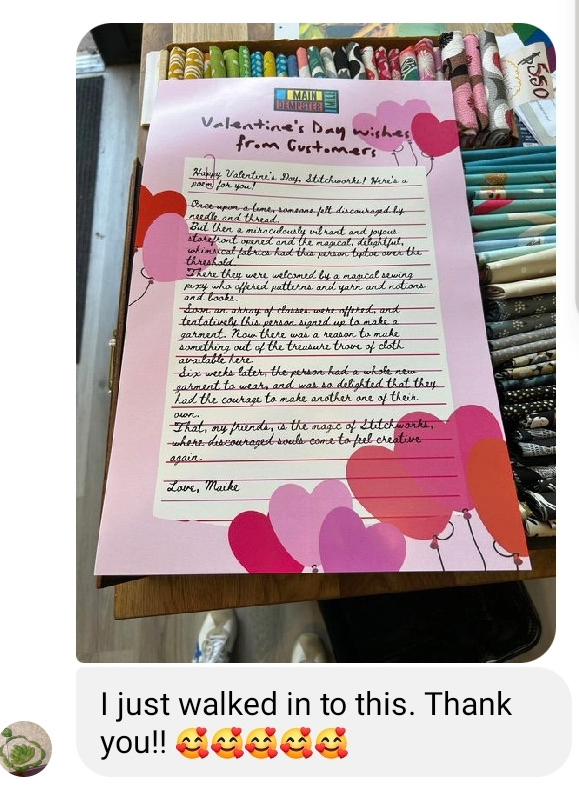 MAIN
DEMPSTER
MILE
$550
Valentine's Day wishes
from Customers
Happy Valentine's Day, Stitchworks! Here's a
poem for you!
Once upon a time, someone felt discouraged by
needle and thread.
But then a miraculously vibrant and joyous
storefront opened and the magical, delightful,
whimsical fabrics had this person tiptoe over the
threshold.
There they were welcomed by a magical sewing
pixy who offered patterns and yarn and notions
and books.
Soon an array of classes were offered, and
tentatively this person signed up to make a
garment. Now there was a reason to make
something out of the treasure trove of cloth
available here.
Six weeks later, the person had a whole new
garment to wear, and was so delighted that they
had the courage to make another one of their
own.
That, my friends, is the magic of Stitchworks,
where discouraged souls come to feel creative
again.
Love,
I just walked in to this. Thank
you!! 🥰🥰🥰🥰🥰